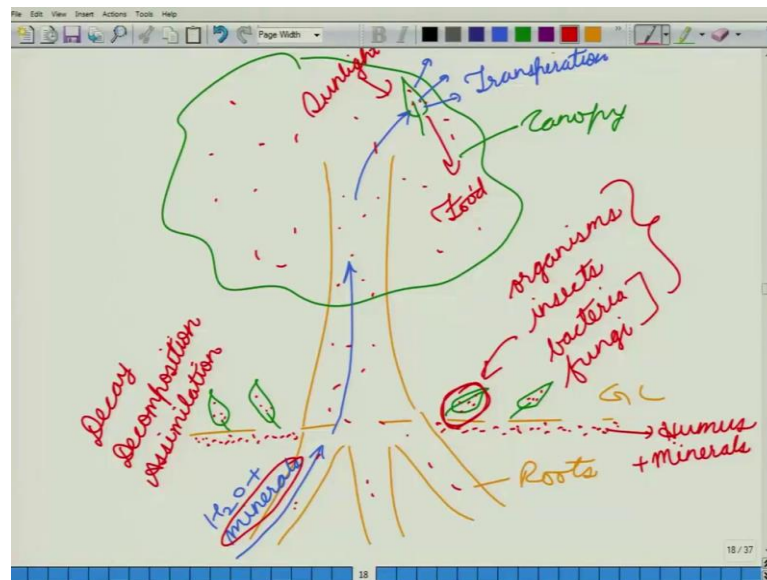 File Edit View Insert Actions Tools Help
Page Width
B I
Sunlight
Transperation
Canopy
Food
organisms
insects
bacteria
fungi
Decay
Decomposition
Assimilation
GL
Humus
+ minerals
H2O +
minerals
Roots
18 / 37
18